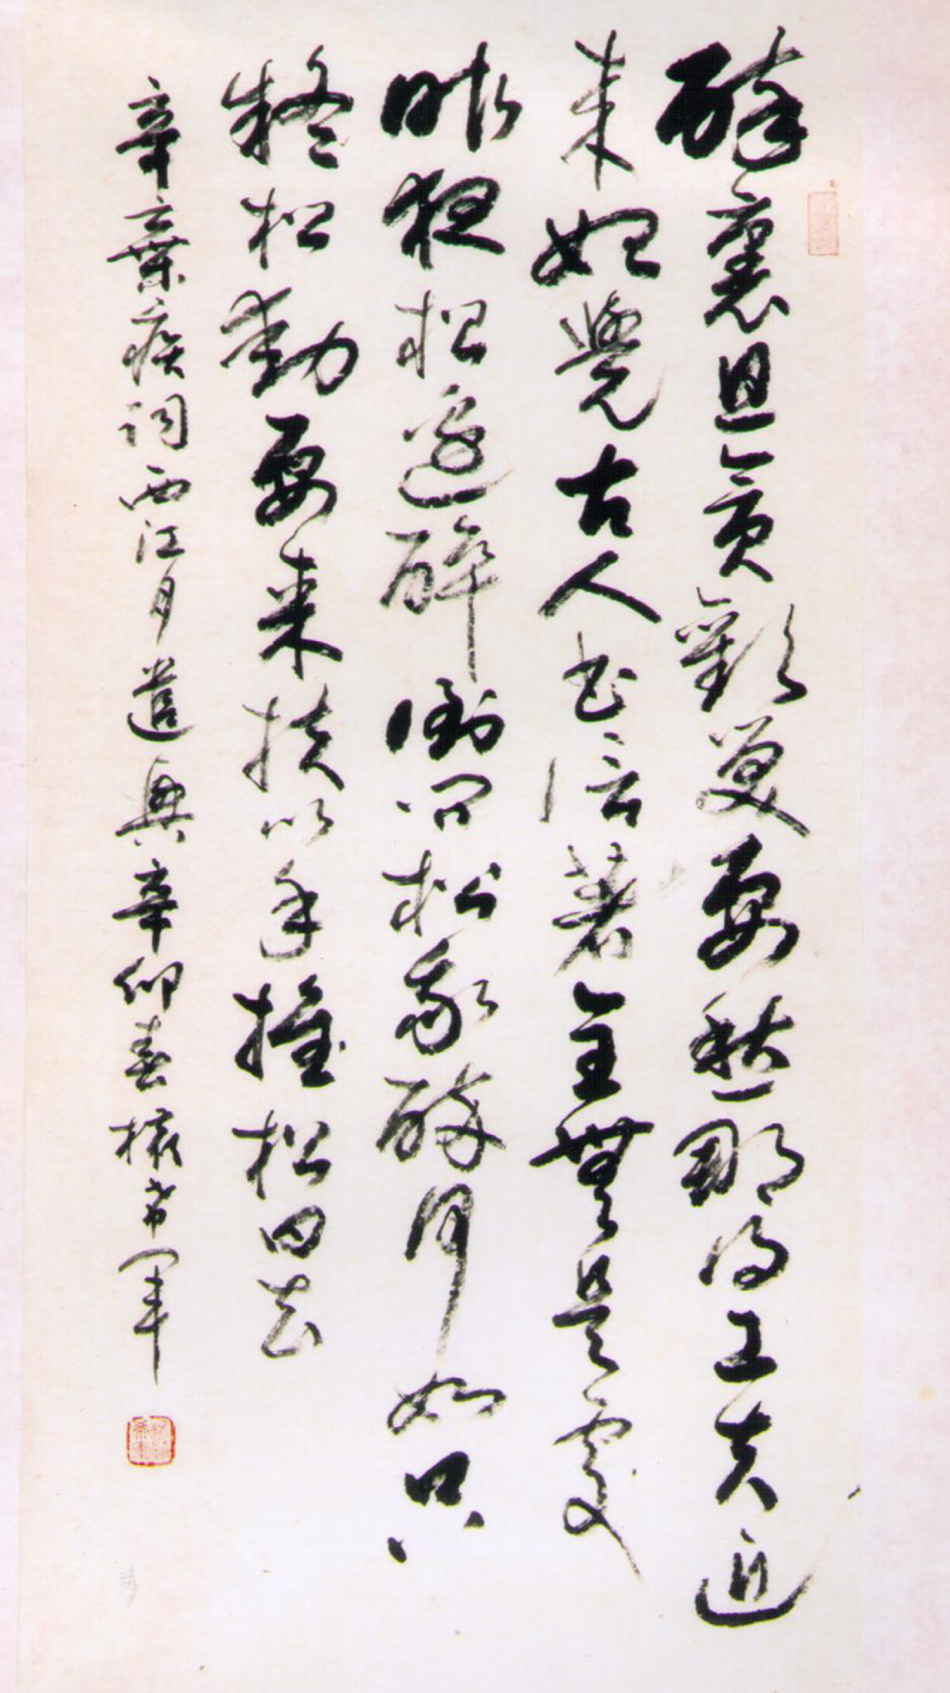 醉裏且貪歡笑要愁那得工夫近
来始覺古人书信著全無是處
昨夜松邊醉倒问松我醉何如只
疑松動要来扶以手推松曰去
辛棄疾詞西江月遣興辛卯春